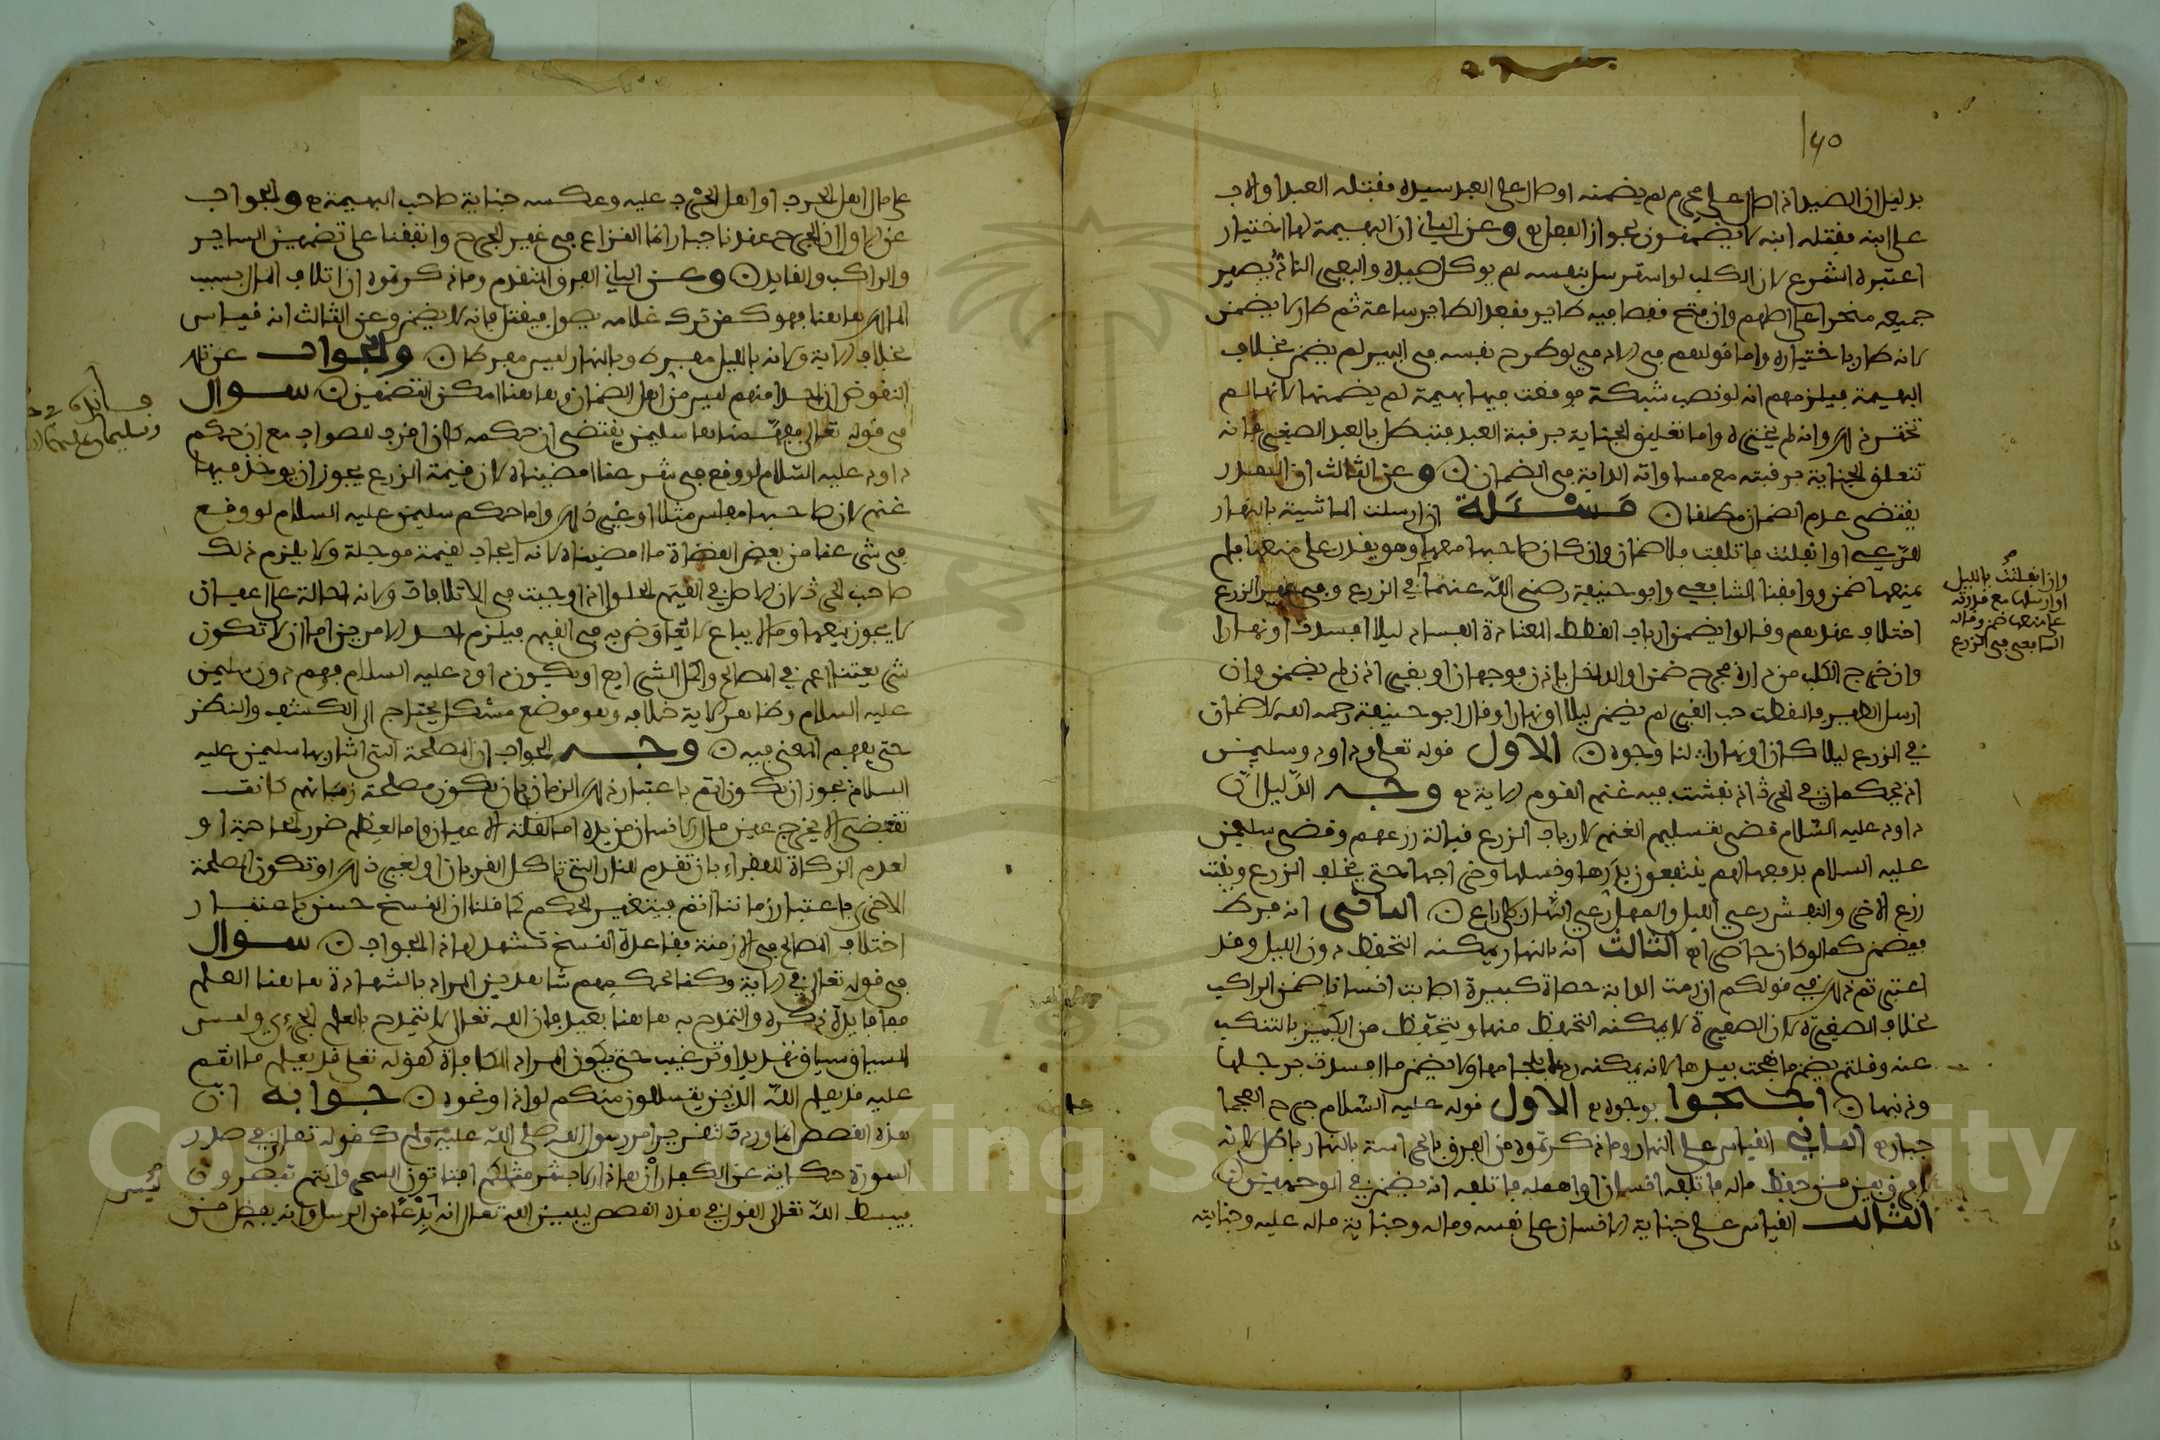 ١٤٥
بدليل ان الصيد اذا صال على محرم لم يضمنه او صال على العبد سيده فقتله العبد او الاب
على ابنه فقتله ابنه لا يضمنون لجواز الفعل وعن الثاني ان البهيمة لها اختيار
اعتبره الشرع لان الكلب لو استرسل بنفسه لم يوكل صيده والبعير الناد يصير
جميعه منحرا على اصلهم وان فتح قفصا فيه طاير فقعد الطاير ساعة ثم طار لا يضمن
لانه طار باختياره واما قولهم في الادمي لو طرح نفسه في البير لم يضمن بخلاف
البهيمة فيلزمهم انه لو نصب شبكة فوقعت فيها بهيمة لم يضمنها لانها لم
تختر ذلك وانه لم يختره واما تعليق الجناية برقبة العبد فتبطل بالعبد الصغير فانه
تتعلق الجناية برقبته مع مساواته الدابة في الضمان وعن الثالث ان الهدر
يقتضي عدم الضمان مطلقا مسئلة ان ارسلت الماشية بالنهار
للرعي او انفلتت فاتلفت فلا ضمان وان كان صاحبها معها وهو يقدر على منعها فلم
يمنعها ضمن ووافقنا الشافعي وابو حنيفة رضي الله عنهما في الزرع وفي غير الزرع
اختلاف عندهم وقالوا يضمن ارباب القطط المعتادة الفساد ليلا افسدت او نهارا
وان خرج الكلب من داره فجرح ضمن او الداخل باذن فوجهان او بغير اذن لم يضمن وان
ارسل الطير فالتقطت حب الغير لم يضمن ليلا او نهارا وقال ابو حنيفة رحمه الله لا ضمان
في الزرع ليلا كان او نهارا لنا وجوه الاول قوله تعلى وداود وسليمن
اذ يحكمان في الحرث اذ نفشت فيه غنم القوم الاية وجه الدليل ان
داود عليه السلام قضى بتسليم الغنم لارباب الزرع قبالة زرعهم وقضى سليمن
عليه السلام بدفعها لهم ينتفعون بدرها ونسلها وخراجها حتى يخلف الزرع وينبت
زرع الاخر والنفش رعي الليل والهمل رعي النهار بلا راع الثاني انه فرط
فيضمن كما لو كان حاضرا الثالث انه بالنهار يمكنه التحفظ دون الليل وقد
اعتبرتم ذلك في قولكم ان رمت الدابة حصاة كبيرة اصابت انسانا ضمن الراكب
بخلاف الصغيرة لان الصغيرة لا يمكنه التحفظ منها ويتحفظ من الكبير بالتنكب
عنه وقلتم يضمن ما نفحت بيدها لانه يمكنه ردها بلجامها ولا يضمن ما افسدت برجلها
وذنبها احتجوا بوجوه الاول قوله عليه السلام جرح العجما
جبار الثاني القياس على النهار وما ذكرتموه من الفرق بالحراسة بالنهار باطل لانه
لا فرق بين من حفظ ماله فاتلفه انسان او اهمله فاتلفه انه يضمن في الوجهين
الثالث القياس على جناية الانسان على نفسه وماله وجناية ماله عليه وجنايته
وان انفلتت بالليل
او ارسلها مع قدرته
على منعها ضمن وقاله
الشافعي في الزرع
على مال اهل الحرب او اهل الحرب عليه وعكسه جناية صاحب البهيمة والجواب
عن الاول ان الجرح عندنا جبار انما النزاع في غير الجرح واتفقنا على تضمين الساير
والراكب والقايد وعن الثاني الفرق المتقدم وما ذكرتموه ان اتلاف المال بسبب
المالك هاهنا فهو كمن ترك غلامه يصول فيقتل فانه لا يضمن وعن الثالث انه قياس
بخلاف الاية ولانه بالليل مفرط وبالنهار ليس مفرطا والجواب عن تلك
النقوض ان احدا منهم ليس من اهل الضمان وهاهنا امكن التضمين سوال
في قوله تعالى ففهمناها سليمن يقتضي ان حكمه كان اقرب للصواب مع ان حكم
داود عليه السلام لو وقع في شرعنا امضيناه لان قيمة الزرع يجوز ان يوخذ فيها
غنم لان صاحبها مفلس مثلا او غير ذلك واما حكم سليمن عليه السلام لو وقع
في شرعنا من بعض القضاة ما امضيناه لانه ايجاب لقيمة موجلة ولا يلزم ذلك
صاحب الحرث لان الاصل في القيم الحلول اذا وجبت في الاتلافات ولانه احالة على اعيان
لا يجوز بيعها وما لا يباع لا يعاوض به في القيم فيلزم احد الامرين اما ان لا تكون
شريعتنا اعم في المصالح واكمل الشرايع او يكون داود عليه السلام فهم دون سليمن
عليه السلام وظاهر الاية خلافه وهو موضع مشكل يحتاج الى الكشف والنظر
حتى يفهم المعنى فيه وجه الجواب ان المصلحة التي اشار بها سليمن عليه
السلام يجوز ان تكون اتم باعتبار ذلك الزمان بان يكون مصلحة زمانهم كانت
تقتضي ان لا يخرج عين مال الانسان من يده اما لقلة الاعيان واما لعظم ضرر الحاجة او
لعدم الزكاة للفقراء بان تقدم للنار التي تاكل القربان او لغير ذلك او تكون المصلحة
الاخرى باعتبار زماننا اتم فيتغير الحكم كما قلنا ان النسخ حسن باعتبار
اختلاف المصالح في الازمنة فقاعدة النسخ تشهد لهذا الجواب سوال
في قوله تعالى في الاية وكنا لحكمهم شاهدين المراد بالشهادة هاهنا العلم
فما فايدة ذكره والتمدح به هاهنا بعيد فان الله تعالى لا يتمدح بالعلم الجزءي وليس
السياق سياق تهديد او ترغيب حتى يكون المراد المكافاة كقوله تعلى قد يعلم ما انتم
عليه قد يعلم الله الذين يتسللون منكم لواذا ونحوه جوابه ان
هذه القصص انما وردت لتقرير امر رسول الله صلى الله عليه وسلم كقوله تعالى في صدر
السورة حكاية عن الكفار ان هذا الا بشر مثلكم افتاتون السحر وانتم تبصرون
فبسط الله تعالى القول في هذه القصص ليبين الله تعالى انه ليس بدعا من الرسل وانه يفضل من
ليس